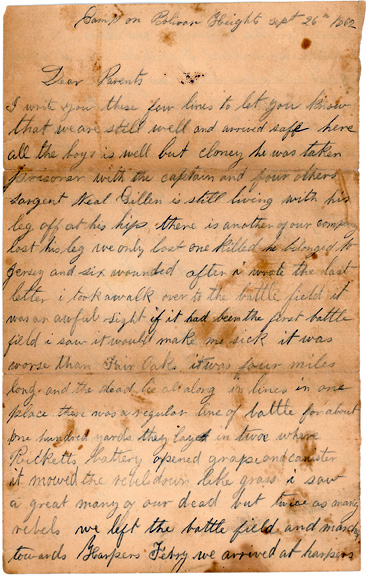 Camp on Bolivar Heights Sept 26th 1862
Dear Parents
I writ you these few lines to let you know
that we are still well and arrived safe here
all the boys is well but cloney he was taken
prisonar with the captain and four others
sargent Neal Gillen is still living with his
leg off at his hips there is another of our company
lost his leg we only lost one killed he belonged to
jersy and six wounded after i wrote the last
letter i took a walk over to the battle field it
was an awful sight if it had been the first battle
field i saw it would make me sick it was
worse than Fair Oaks it was four miles
long and the dead lie all along in lines in one
place there was a regular line of battle for about
one hundred yards they layed in twos where
Ricketts battery opened grape and canister
it mowed the rebels down like grass i saw
a great many of our dead but twice as many
rebels we left the battle field and marched
towards Harpers Ferry we arrived at harpers